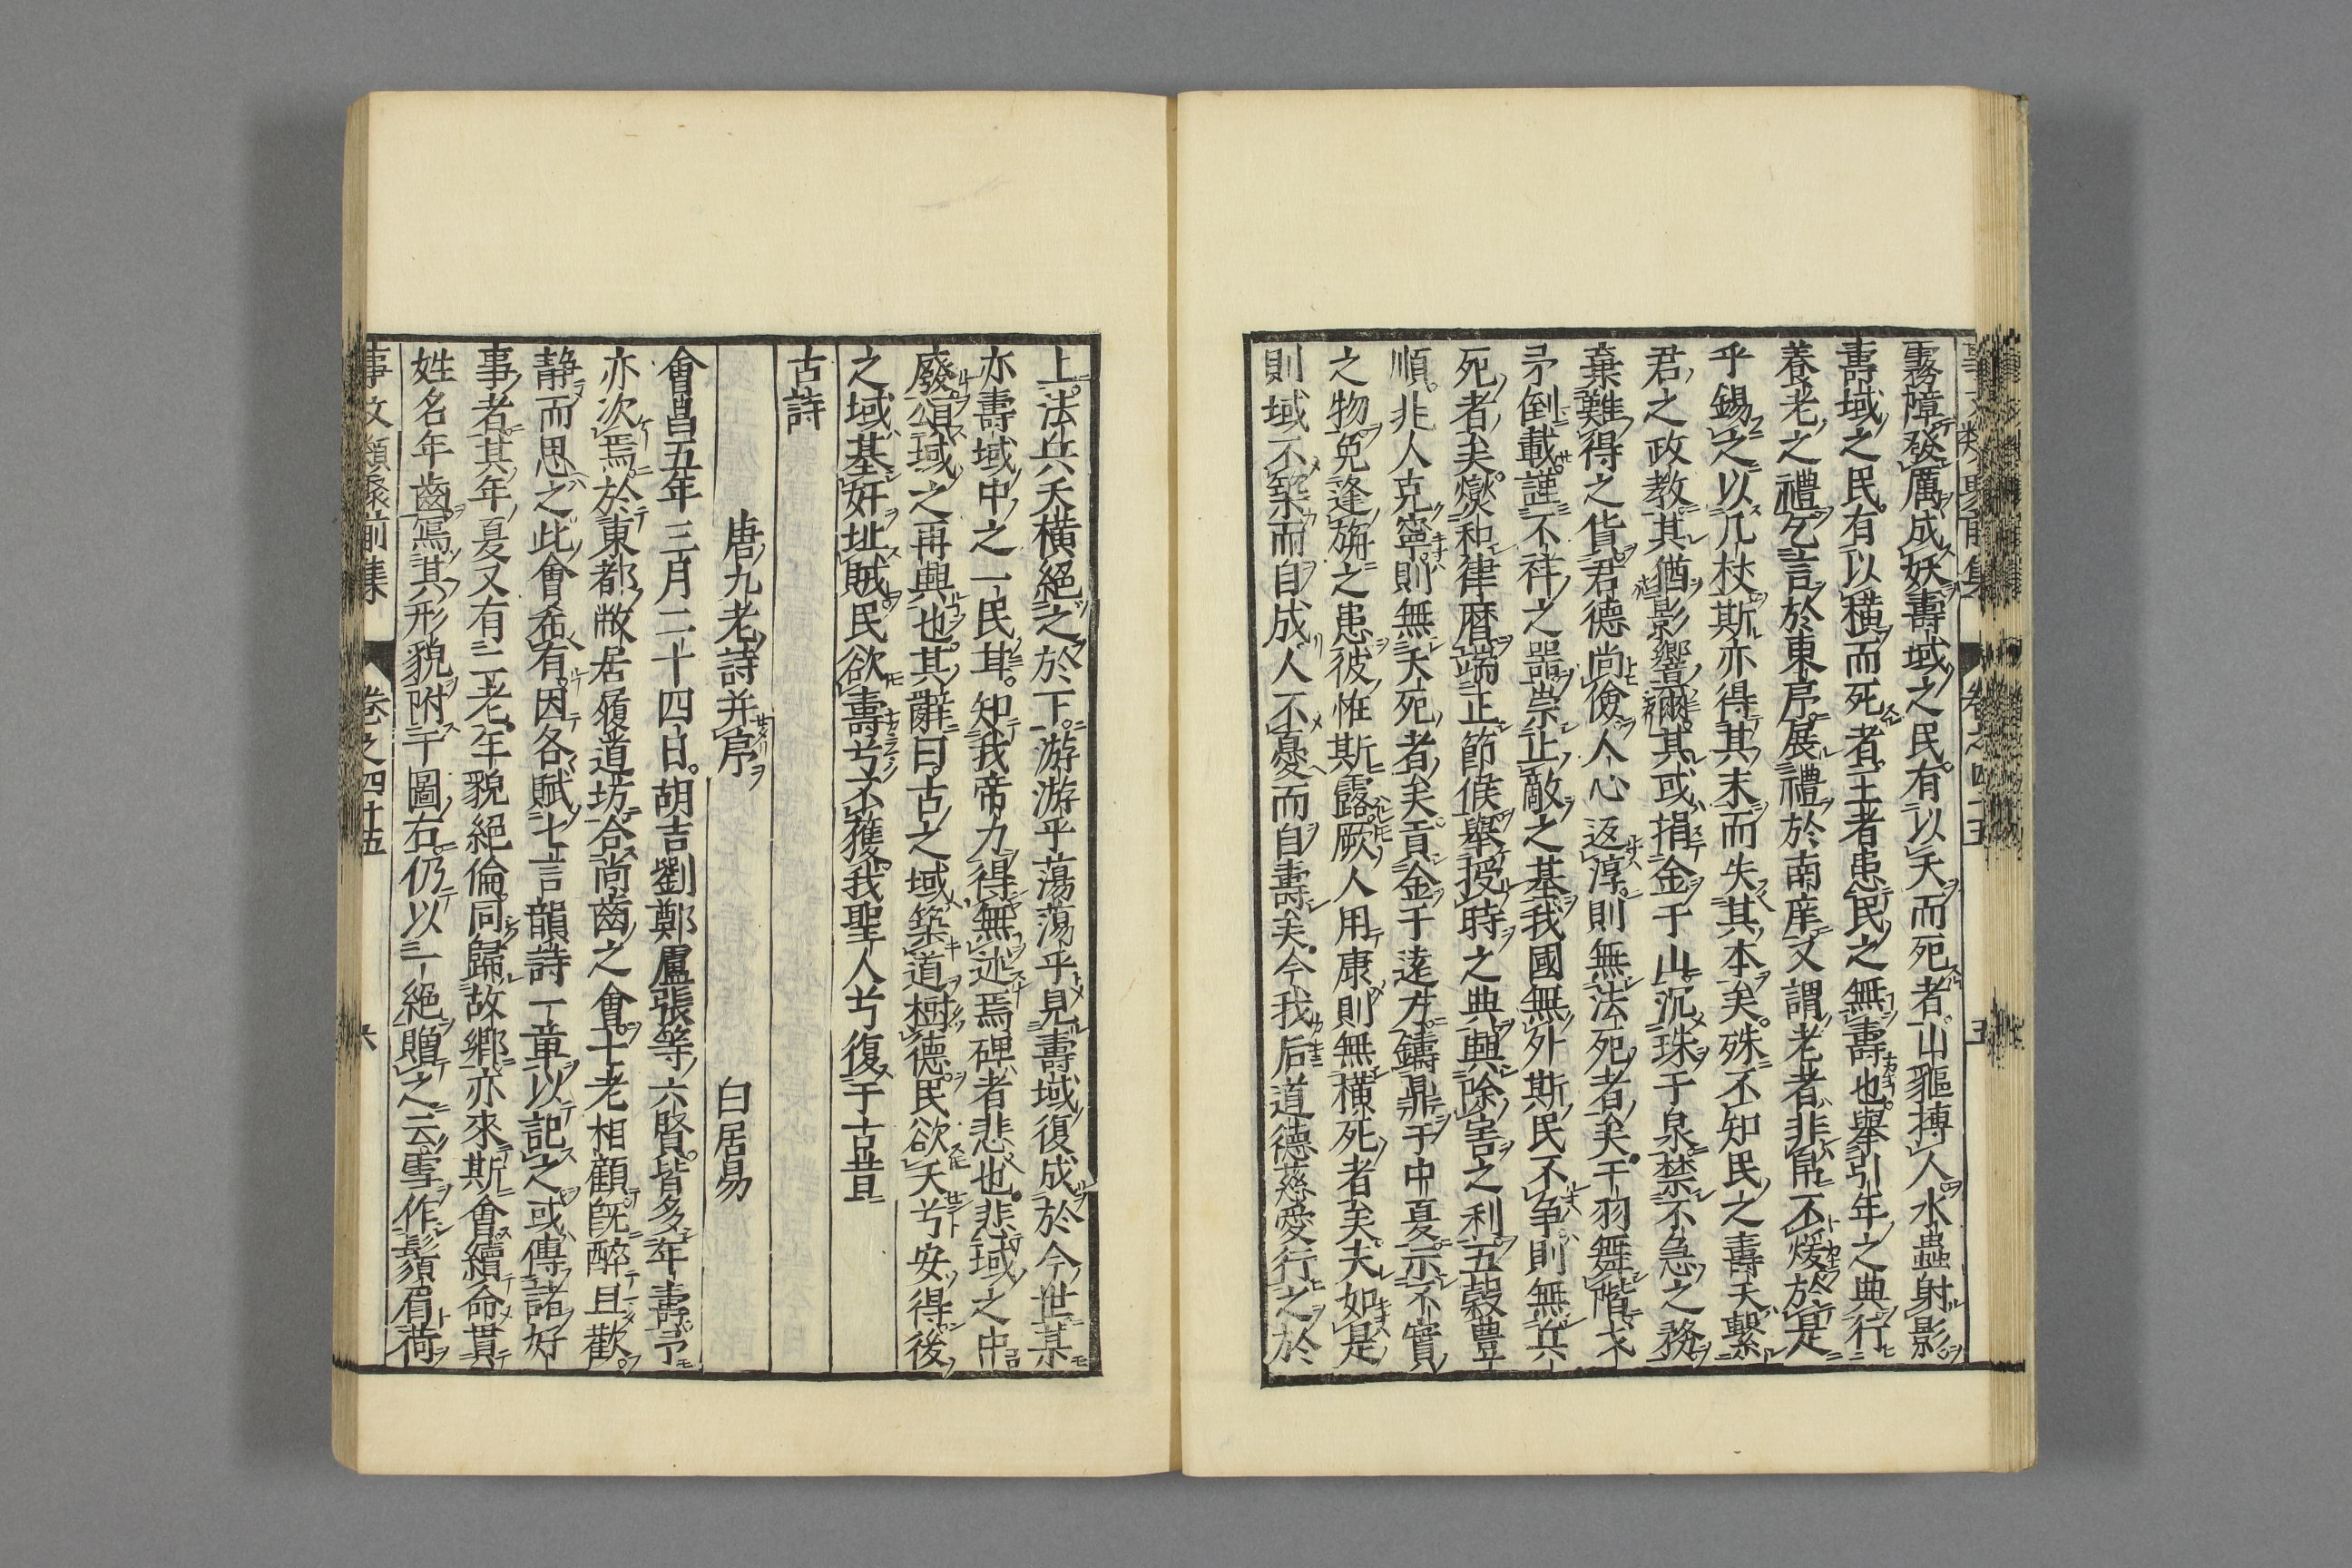 霧障發厲成妖壽域之民有以夭而死者山軀搏人水蟲射影
壽域之民有以横而死者王者患民之無壽也舉引年之典行
養老之禮乞言於東序展禮於南庠又謂老者非帛不煖於是
乎錫之以几杖斯亦得其末而失其本矣殊不知民之壽夭繫
君之政教其猶影響爾其或捐金于山沉珠于泉禁不急之務
棄難得之貨君德尚儉人心返淳則無法死者矣干羽舞階戈
矛倒載謹不祥之器崇止敵之基我國無外斯民不争則無兵
死者矣爕和律暦端正節候舉授時之典興除害之利五穀豊
順非人克寧則無夭死者矣貢金于遠方鑄鼎于中夏示不實
之物免逢旃之患彼恠斯露厥人用康則無横死者矣夫如是
則域不築而自成人不憂而自壽矣今我后道德慈愛行之於
上法兵夭横絕之於下游游乎蕩蕩乎見壽域復成於今世某
亦壽域中之一民耳知我帝力得無述焉碑者悲也悲域之中
廢頌域之再興也其辭曰古之域築道樹德民欲夭兮安得後
之域基奸址賊民欲壽兮不獲我聖人兮復于古昔
古詩
唐九老詩并序 白居易
會昌五年三月二十四日胡吉劉鄭盧張等六賢皆多年壽予
亦次焉於東都敝居履道坊合尚齒之會七老相顧既醉且歡
静而思之此會希有因各賦七言韻詩一章以記之或傳諸好
事者其年夏又有二老年貌絕倫同歸故鄉亦來斯會續命貫
姓名年齒寫其形貌附于圖右仍以一絕贈之云雪作鬚眉荷
事文類聚前集 卷之四十五 六